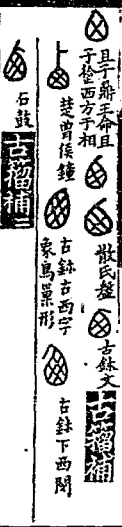 且子鼎王命且
子西方于相
散氏盤
古鉢文
古籀補
楚曾侯鐘
古鉢古西字
象鳥巢形
古鉢下西閒
石鼓
古籀補